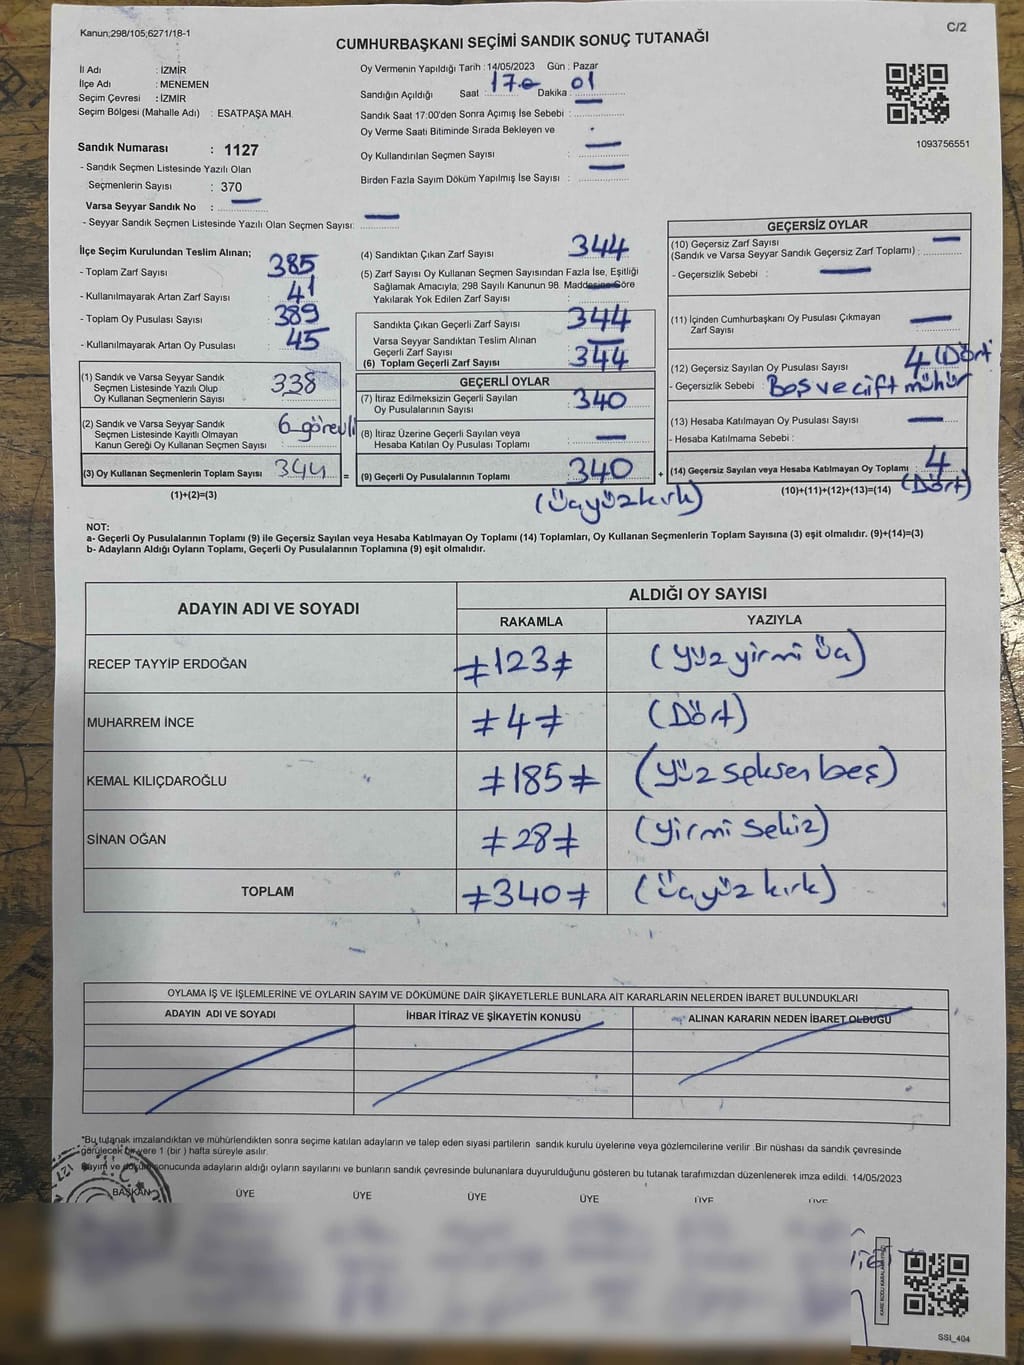 Kanun;298/105;6271/18-1
C/2
CUMHURBAŞKANI SEÇİMİ SANDIK SONUÇ TUTANAĞI
İl Adı : İZMİR
İlçe Adı : MENEMEN
Seçim Çevresi : İZMİR
Seçim Bölgesi (Mahalle Adı) : ESATPAŞA MAH.
Sandık Numarası : 1127
- Sandık Seçmen Listesinde Yazılı Olan
Seçmenlerin Sayısı : 370
Varsa Seyyar Sandık No : —
- Seyyar Sandık Seçmen Listesinde Yazılı Olan Seçmen Sayısı: —
Oy Vermenin Yapıldığı Tarih : 14/05/2023 Gün : Pazar
Sandığın Açıldığı Saat : 17.0 Dakika : 01
Sandık Saat 17:00'den Sonra Açımış İse Sebebi : —
Oy Verme Saati Bitiminde Sırada Bekleyen ve
Oy Kullandırılan Seçmen Sayısı : —
Birden Fazla Sayım Döküm Yapılmış İse Sayısı : —
1093756551
İlçe Seçim Kurulundan Teslim Alınan;
- Toplam Zarf Sayısı : 385
- Kullanılmayarak Artan Zarf Sayısı : 41
- Toplam Oy Pusulası Sayısı : 389
- Kullanılmayarak Artan Oy Pusulası : 45
(1) Sandık ve Varsa Seyyar Sandık
Seçmen Listesinde Yazılı Olup
Oy Kullanan Seçmenlerin Sayısı : 338
(2) Sandık ve Varsa Seyyar Sandık
Seçmen Listesinde Kayıtlı Olmayan
Kanun Gereği Oy Kullanan Seçmen Sayısı : 6 görevli
(3) Oy Kullanan Seçmenlerin Toplam Sayısı : 344 =
(1)+(2)=(3)
(4) Sandıktan Çıkan Zarf Sayısı : 344
(5) Zarf Sayısı Oy Kullanan Seçmen Sayısından Fazla İse, Eşitliği
Sağlamak Amacıyla; 298 Sayılı Kanunun 98. Maddesine Göre
Yakılarak Yok Edilen Zarf Sayısı : —
Sandıkta Çıkan Geçerli Zarf Sayısı : 344
Varsa Seyyar Sandıktan Teslim Alınan
Geçerli Zarf Sayısı : —
(6) Toplam Geçerli Zarf Sayısı : 344
GEÇERLİ OYLAR
(7) İtiraz Edilmeksizin Geçerli Sayılan
Oy Pusulalarının Sayısı : 340
(8) İtiraz Üzerine Geçerli Sayılan veya
Hesaba Katılan Oy Pusulası Toplamı : —
(9) Geçerli Oy Pusulalarının Toplamı : 340 +
(Üçyüzkırk)
GEÇERSİZ OYLAR
(10) Geçersiz Zarf Sayısı
(Sandık ve Varsa Seyyar Sandık Geçersiz Zarf Toplamı) : —
- Geçersizlik Sebebi : —
(11) İçinden Cumhurbaşkanı Oy Pusulası Çıkmayan
Zarf Sayısı : —
(12) Geçersiz Sayılan Oy Pusulası Sayısı : 4 (Dört
- Geçersizlik Sebebi : Boş ve çift mühür
(13) Hesaba Katılmayan Oy Pusulası Sayısı : —
- Hesaba Katılmama Sebebi :
(14) Geçersiz Sayılan veya Hesaba Katılmayan Oy Toplamı : 4
(10)+(11)+(12)+(13)=(14) (Dört)
NOT:
a- Geçerli Oy Pusulalarının Toplamı (9) ile Geçersiz Sayılan veya Hesaba Katılmayan Oy Toplamı (14) Toplamları, Oy Kullanan Seçmenlerin Toplam Sayısına (3) eşit olmalıdır. (9)+(14)=(3)
b- Adayların Aldığı Oyların Toplamı, Geçerli Oy Pusulalarının Toplamına (9) eşit olmalıdır.
ADAYIN ADI VE SOYADI
ALDIĞI OY SAYISI
RAKAMLA YAZIYLA
RECEP TAYYİP ERDOĞAN ≠123≠ (Yüz yirmi üç)
MUHARREM İNCE ≠4≠ (Dört)
KEMAL KILIÇDAROĞLU ≠185≠ (Yüz seksen beş)
SİNAN OĞAN ≠28≠ (Yirmi sekiz)
TOPLAM ≠340≠ (Üçyüz kırk)
OYLAMA İŞ VE İŞLEMLERİNE VE OYLARIN SAYIM VE DÖKÜMÜNE DAİR ŞİKAYETLERLE BUNLARA AİT KARARLARIN NELERDEN İBARET BULUNDUKLARI
ADAYIN ADI VE SOYADI İHBAR İTİRAZ VE ŞİKAYETİN KONUSU ALINAN KARARIN NEDEN İBARET OLDUĞU
*Bu tutanak imzalandıktan ve mühürlendikten sonra seçime katılan adayların ve talep eden siyasi partilerin sandık kurulu üyelerine veya gözlemcilerine verilir. Bir nüshası da sandık çevresinde
görülecek bir yere 1 (bir ) hafta süreyle asılır.
Sayım ve döküm sonucunda adayların aldığı oyların sayılarını ve bunların sandık çevresinde bulunanlara duyurulduğunu gösteren bu tutanak tarafımızdan düzenlenerek imza edildi. 14/05/2023
BAŞKAN ÜYE ÜYE ÜYE ÜYE ÜYE ÜYE
T.C.
SSI_404